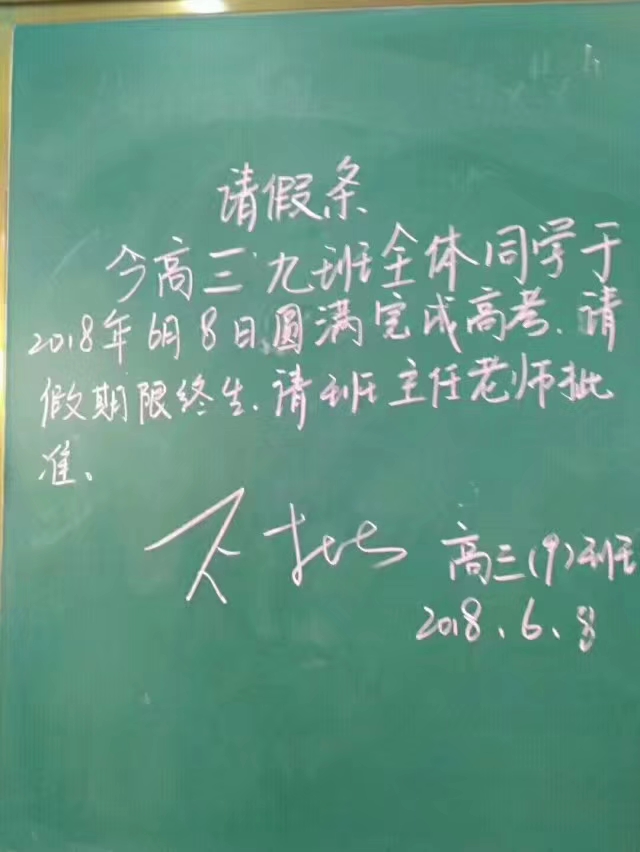 请假条
今高三九班全体同学于
2018年6月8日圆满完成高考、请
假期限终生、请班主任老师批
准、
不批
高三(9)班
2018、6、8